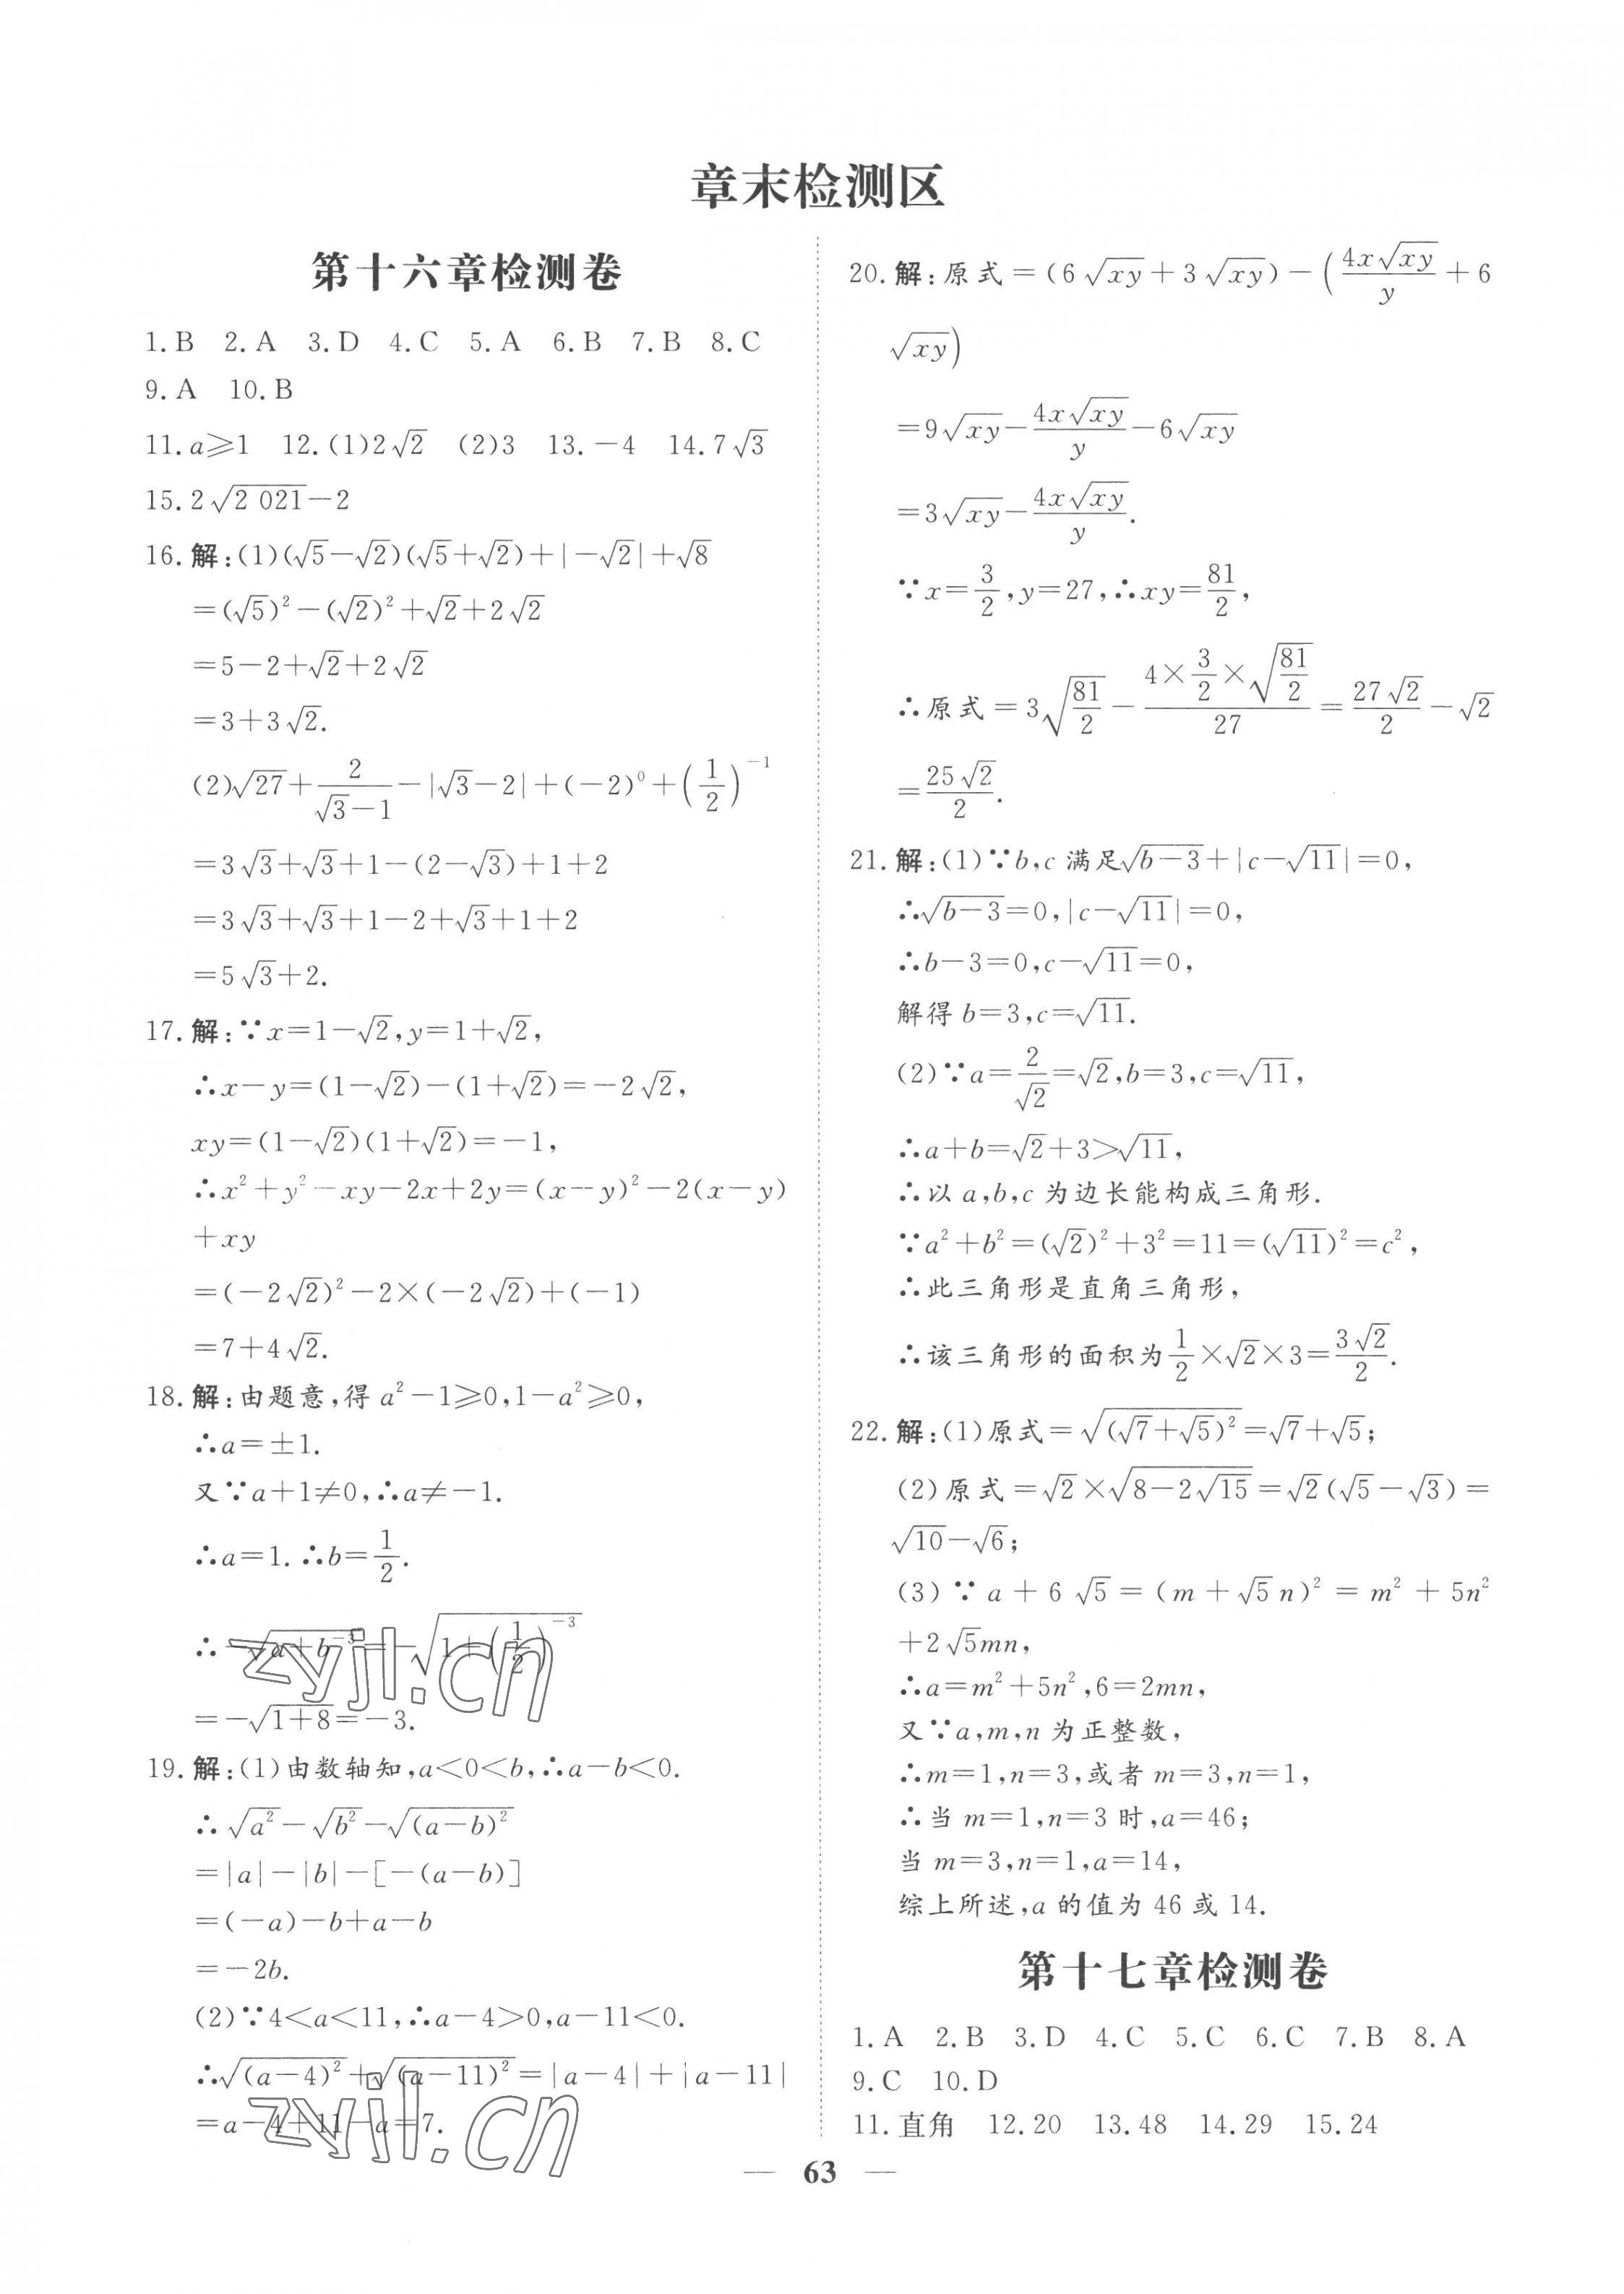 章末检测区
第十六章检测卷
1.B 2.A 3.D 4.C 5.A 6.B 7.B 8.C
9.A 10.B
11.a≥1 12.(1)2√2 (2)3 13.-4 14.7√3
15.2√(2 021)-2
16.解:(1)(√5-√2)(√5+√2)+|-√2|+√8
=(√5)²-(√2)²+√2+2√2
=5-2+√2+2√2
=3+3√2.
(2)√27+2/(√3-1)-|√3-2|+(-2)⁰+(1/2)⁻¹
=3√3+√3+1-(2-√3)+1+2
=3√3+√3+1-2+√3+1+2
=5√3+2.
17.解:∵x=1-√2,y=1+√2,
∴x-y=(1-√2)-(1+√2)=-2√2,
xy=(1-√2)(1+√2)=-1,
∴x²+y²-xy-2x+2y=(x-y)²-2(x-y)
+xy
=(-2√2)²-2×(-2√2)+(-1)
=7+4√2.
18.解:由题意,得a²-1≥0,1-a²≥0,
∴a=±1.
又∵a+1≠0,∴a≠-1.
∴a=1.∴b=1/2.
∴-√(a+b⁻³)=-√(1+(1/2)⁻³)
=-√(1+8)=-3.
19.解:(1)由数轴知,a<0<b,∴a-b<0.
∴√(a²)-√(b²)-√((a-b)²)
=|a|-|b|-[-(a-b)]
=(-a)-b+a-b
=-2b.
(2)∵4<a<11,∴a-4>0,a-11<0.
∴√((a-4)²)+√((a-11)²)=|a-4|+|a-11|
=a-4+11-a=7.
20.解:原式=(6√(xy)+3√(xy))-(4x√(xy)/y+6
√(xy))
=9√(xy)-4x√(xy)/y-6√(xy)
=3√(xy)-4x√(xy)/y.
∵x=3/2,y=27,∴xy=81/2,
∴原式=3√(81/2)-(4×3/2×√(81/2))/27=27√2/2-√2
=25√2/2.
21.解:(1)∵b,c满足√(b-3)+|c-√11|=0,
∴√(b-3)=0,|c-√11|=0,
∴b-3=0,c-√11=0,
解得b=3,c=√11.
(2)∵a=2/√2=√2,b=3,c=√11,
∴a+b=√2+3>√11,
∴以a,b,c为边长能构成三角形.
∵a²+b²=(√2)²+3²=11=(√11)²=c²,
∴此三角形是直角三角形,
∴该三角形的面积为1/2×√2×3=3√2/2.
22.解:(1)原式=√((√7+√5)²)=√7+√5;
(2)原式=√2×√(8-2√15)=√2(√5-√3)=
√10-√6;
(3)∵a+6√5=(m+√5n)²=m²+5n²
+2√5mn,
∴a=m²+5n²,6=2mn,
又∵a,m,n为正整数,
∴m=1,n=3,或者m=3,n=1,
∴当m=1,n=3时,a=46;
当m=3,n=1,a=14,
综上所述,a的值为46或14.
第十七章检测卷
1.A 2.B 3.D 4.C 5.C 6.C 7.B 8.A
9.C 10.D
11.直角 12.20 13.48 14.29 15.24
— 63 —
zyjl.cn
zyjl.cn